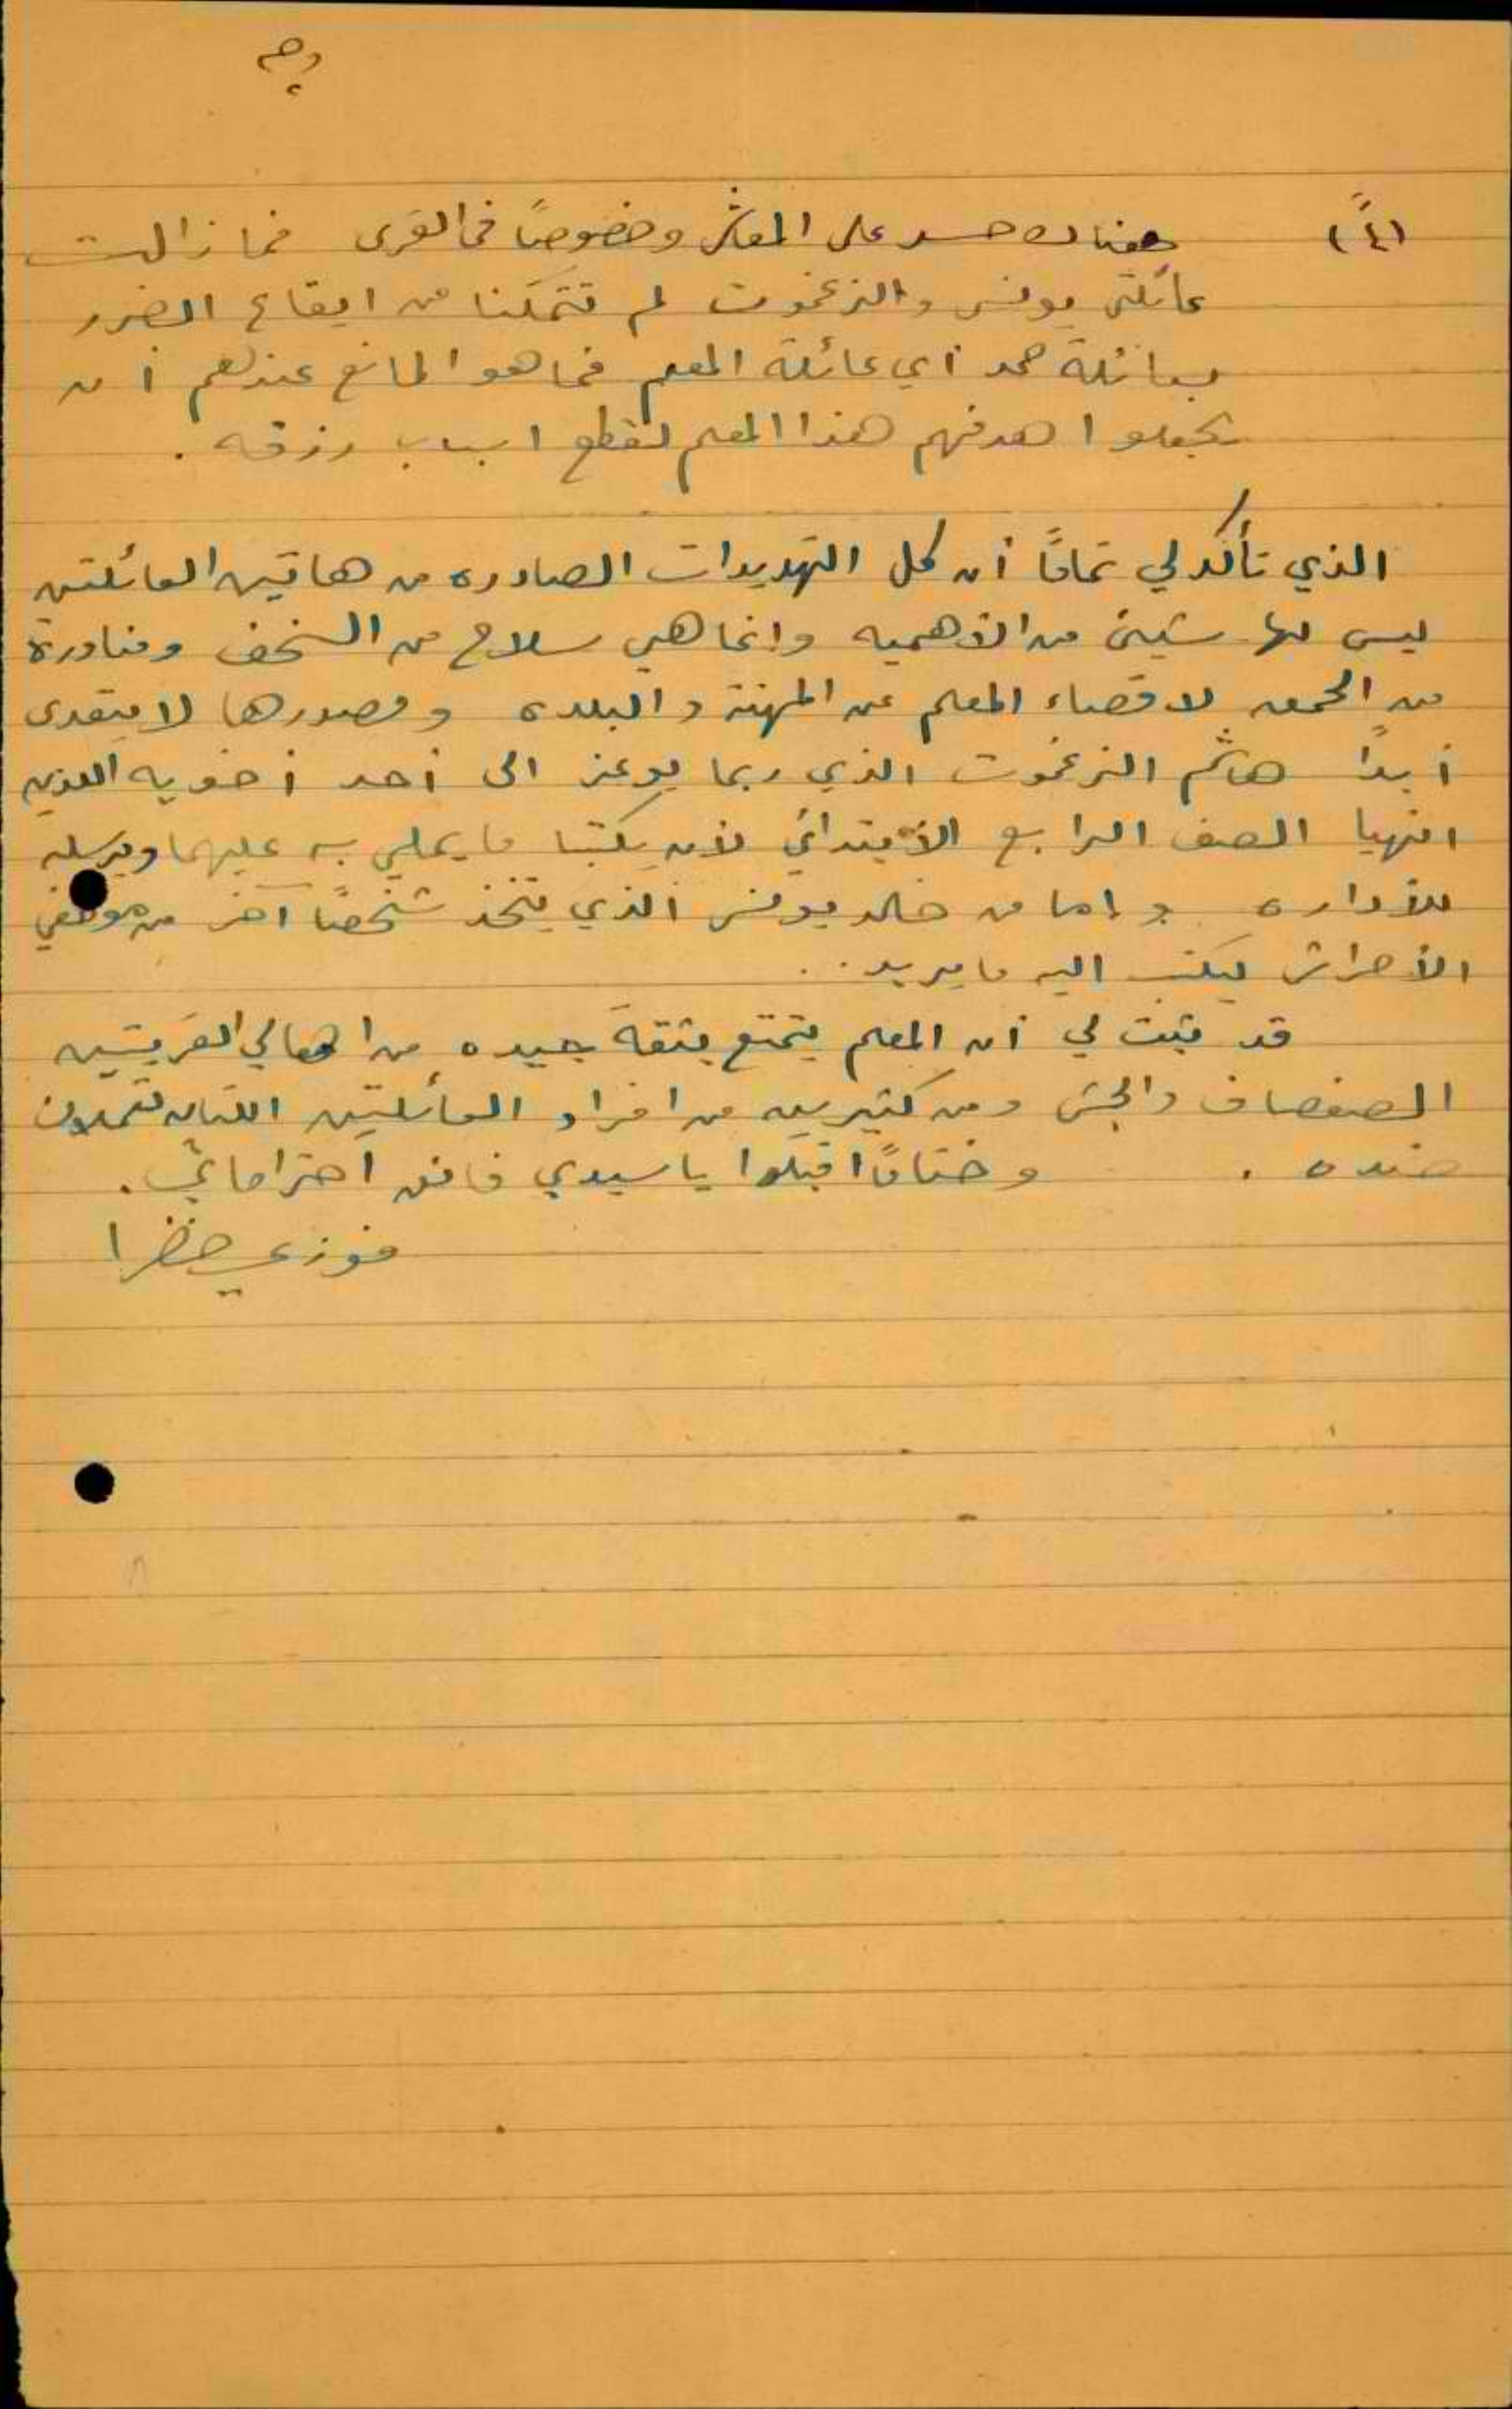 (٤ً) هناك حسد على المعاش وخصوصًا في القرى فما زالت
عائلتي يونس والزغموت لم تتمكنا من ايقاع الضرر
بعائلة حمد أي عائلة المعلم فما هو المانع عندهم أن
يجعلوا هدفهم هذا المعلم لقطع اسباب رزقه .
الذي تأكد لي تمامًا أن كل التهديدات الصادره من هاتين العائلتين
ليس لها شيئ من الأهميه وانما هي سلاح من السخف ومناورة
من الحمق لاقصاء المعلم عن المهنة والبلده ومصدرها لا يتعدى
أبدًا هاشم الزغموت الذي ربما يوعز الى أحد أخويه اللذين
انهيا الصف الرابع الأبتدائي لأن يكتبا ما يملي به عليهما ويرسله
للأداره وإما من خالد يونس الذي يتخذ شخصًا آخر من موظفي
الأحراش ليكتب اليه ما يريد ..
قد ثبت لي أن المعلم يتمتع بثقة جيده من اهالي القريتين
الصفصاف والجش ومن كثيرين من افراد العائلتين اللتان تعملان
ضده . وختامًا اقبلوا يا سيدي فائق احتراماتي .
فوزي خضرا